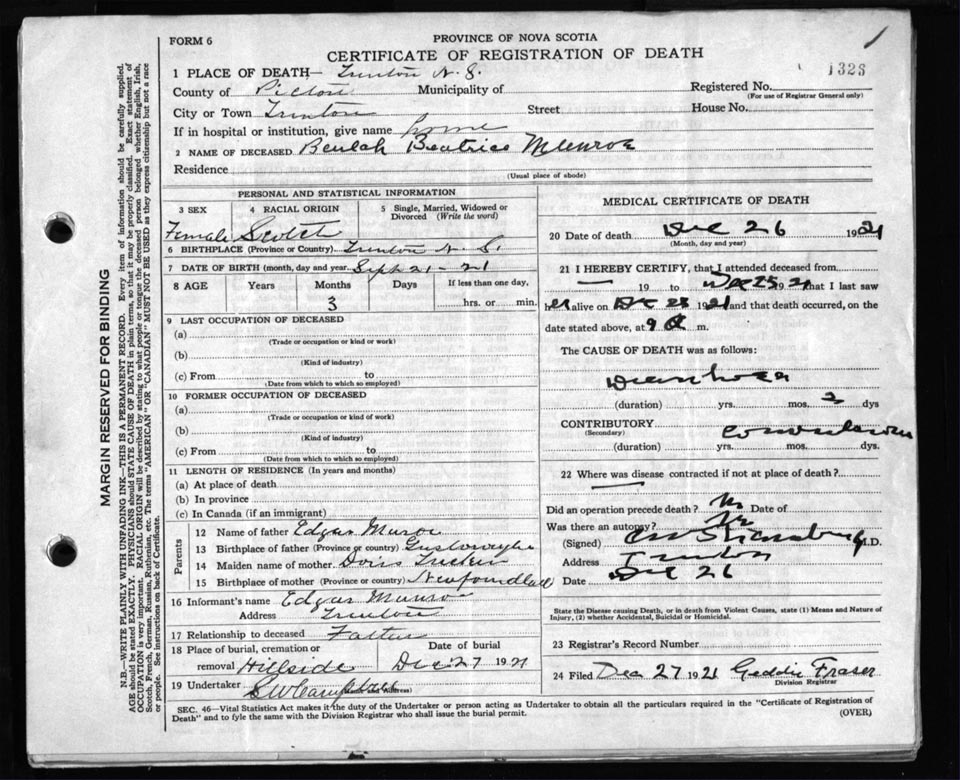 FORM 6
PROVINCE OF NOVA SCOTIA
CERTIFICATE OF REGISTRATION OF DEATH
1323
1 PLACE OF DEATH— Trenton N. S.
Registered No.
(For use of Registrar General only)
County of Pictou Municipality of
City or Town Trenton Street House No.
If in hospital or institution, give name home
2 NAME OF DECEASED Beulah Beatrice Munroe
Residence
(Usual place of abode)
PERSONAL AND STATISTICAL INFORMATION
3 SEX 4 RACIAL ORIGIN 5 Single, Married, Widowed or Divorced (Write the word)
Female Scotch
6 BIRTHPLACE (Province or Country) Trenton N. S.
7 DATE OF BIRTH (month, day and year) Sept 21-21
8 AGE Years Months Days If less than one day,
3 hrs. or min.
9 LAST OCCUPATION OF DECEASED
(a)
(Trade or occupation or kind or work)
(b)
(Kind of industry)
(c) From to
(Date from which to which so employed)
10 FORMER OCCUPATION OF DECEASED
(a)
(Trade or occupation or kind of work)
(b)
(Kind of industry)
(c) From to
(Date from which to which so employed)
11 LENGTH OF RESIDENCE (In years and months)
(a) At place of death
(b) In province
(c) In Canada (if an immigrant)
Parents
12 Name of father Edgar Munroe
13 Birthplace of father (Province or country)
14 Maiden name of mother Doris Tucker
15 Birthplace of mother (Province or country) Newfoundland
16 Informant's name Edgar Munroe
Address Trenton
17 Relationship to deceased Father
18 Place of burial, cremation or Date of burial
removal Hillside Dec 27 1921
19 Undertaker
MEDICAL CERTIFICATE OF DEATH
20 Date of death Dec 26 1921
(Month, day and year)
21 I HEREBY CERTIFY, that I attended deceased from
— 19 to Dec 25 1921 that I last saw
her alive on Dec 25 1921 and that death occurred, on the
date stated above, at 9 a m.
The CAUSE OF DEATH was as follows:
Diarrhoea
(duration) yrs. mos. 2 dys
CONTRIBUTORY
(Secondary)
(duration) yrs. mos. dys.
22 Where was disease contracted if not at place of death?
Did an operation precede death? No Date of
Was there an autopsy? No
(Signed) M.D.
Address Trenton
Date Dec 26
State the Disease causing Death, or in death from Violent Causes, state (1) Means and Nature of
Injury, (2) whether Accidental, Suicidal or Homicidal.
23 Registrar's Record Number
24 Filed Dec 27 1921 Geddie Fraser
Division Registrar
SEC. 46—Vital Statistics Act makes it the duty of the Undertaker or person acting as Undertaker to obtain all the particulars required in the "Certificate of Registration of
Death" and to fyle the same with the Division Registrar who shall issue the burial permit.
(OVER)
MARGIN RESERVED FOR BINDING
N.B.—WRITE PLAINLY WITH UNFADING INK—THIS IS A PERMANENT RECORD. Every item of information should be carefully supplied.
AGE should be stated EXACTLY. PHYSICIANS should STATE CAUSE OF DEATH in plain terms, so that it may be properly classified. Exact statement of
OCCUPATION is very important. RACIAL ORIGIN will be described by stating to what people or tongue the deceased person belonged whether English, Irish,
Scotch, French, German, Russian, Ruthenian, etc. The terms "AMERICAN" OR "CANADIAN" MUST NOT BE USED as they express citizenship but not a race
or people. See instructions on back of Certificate.